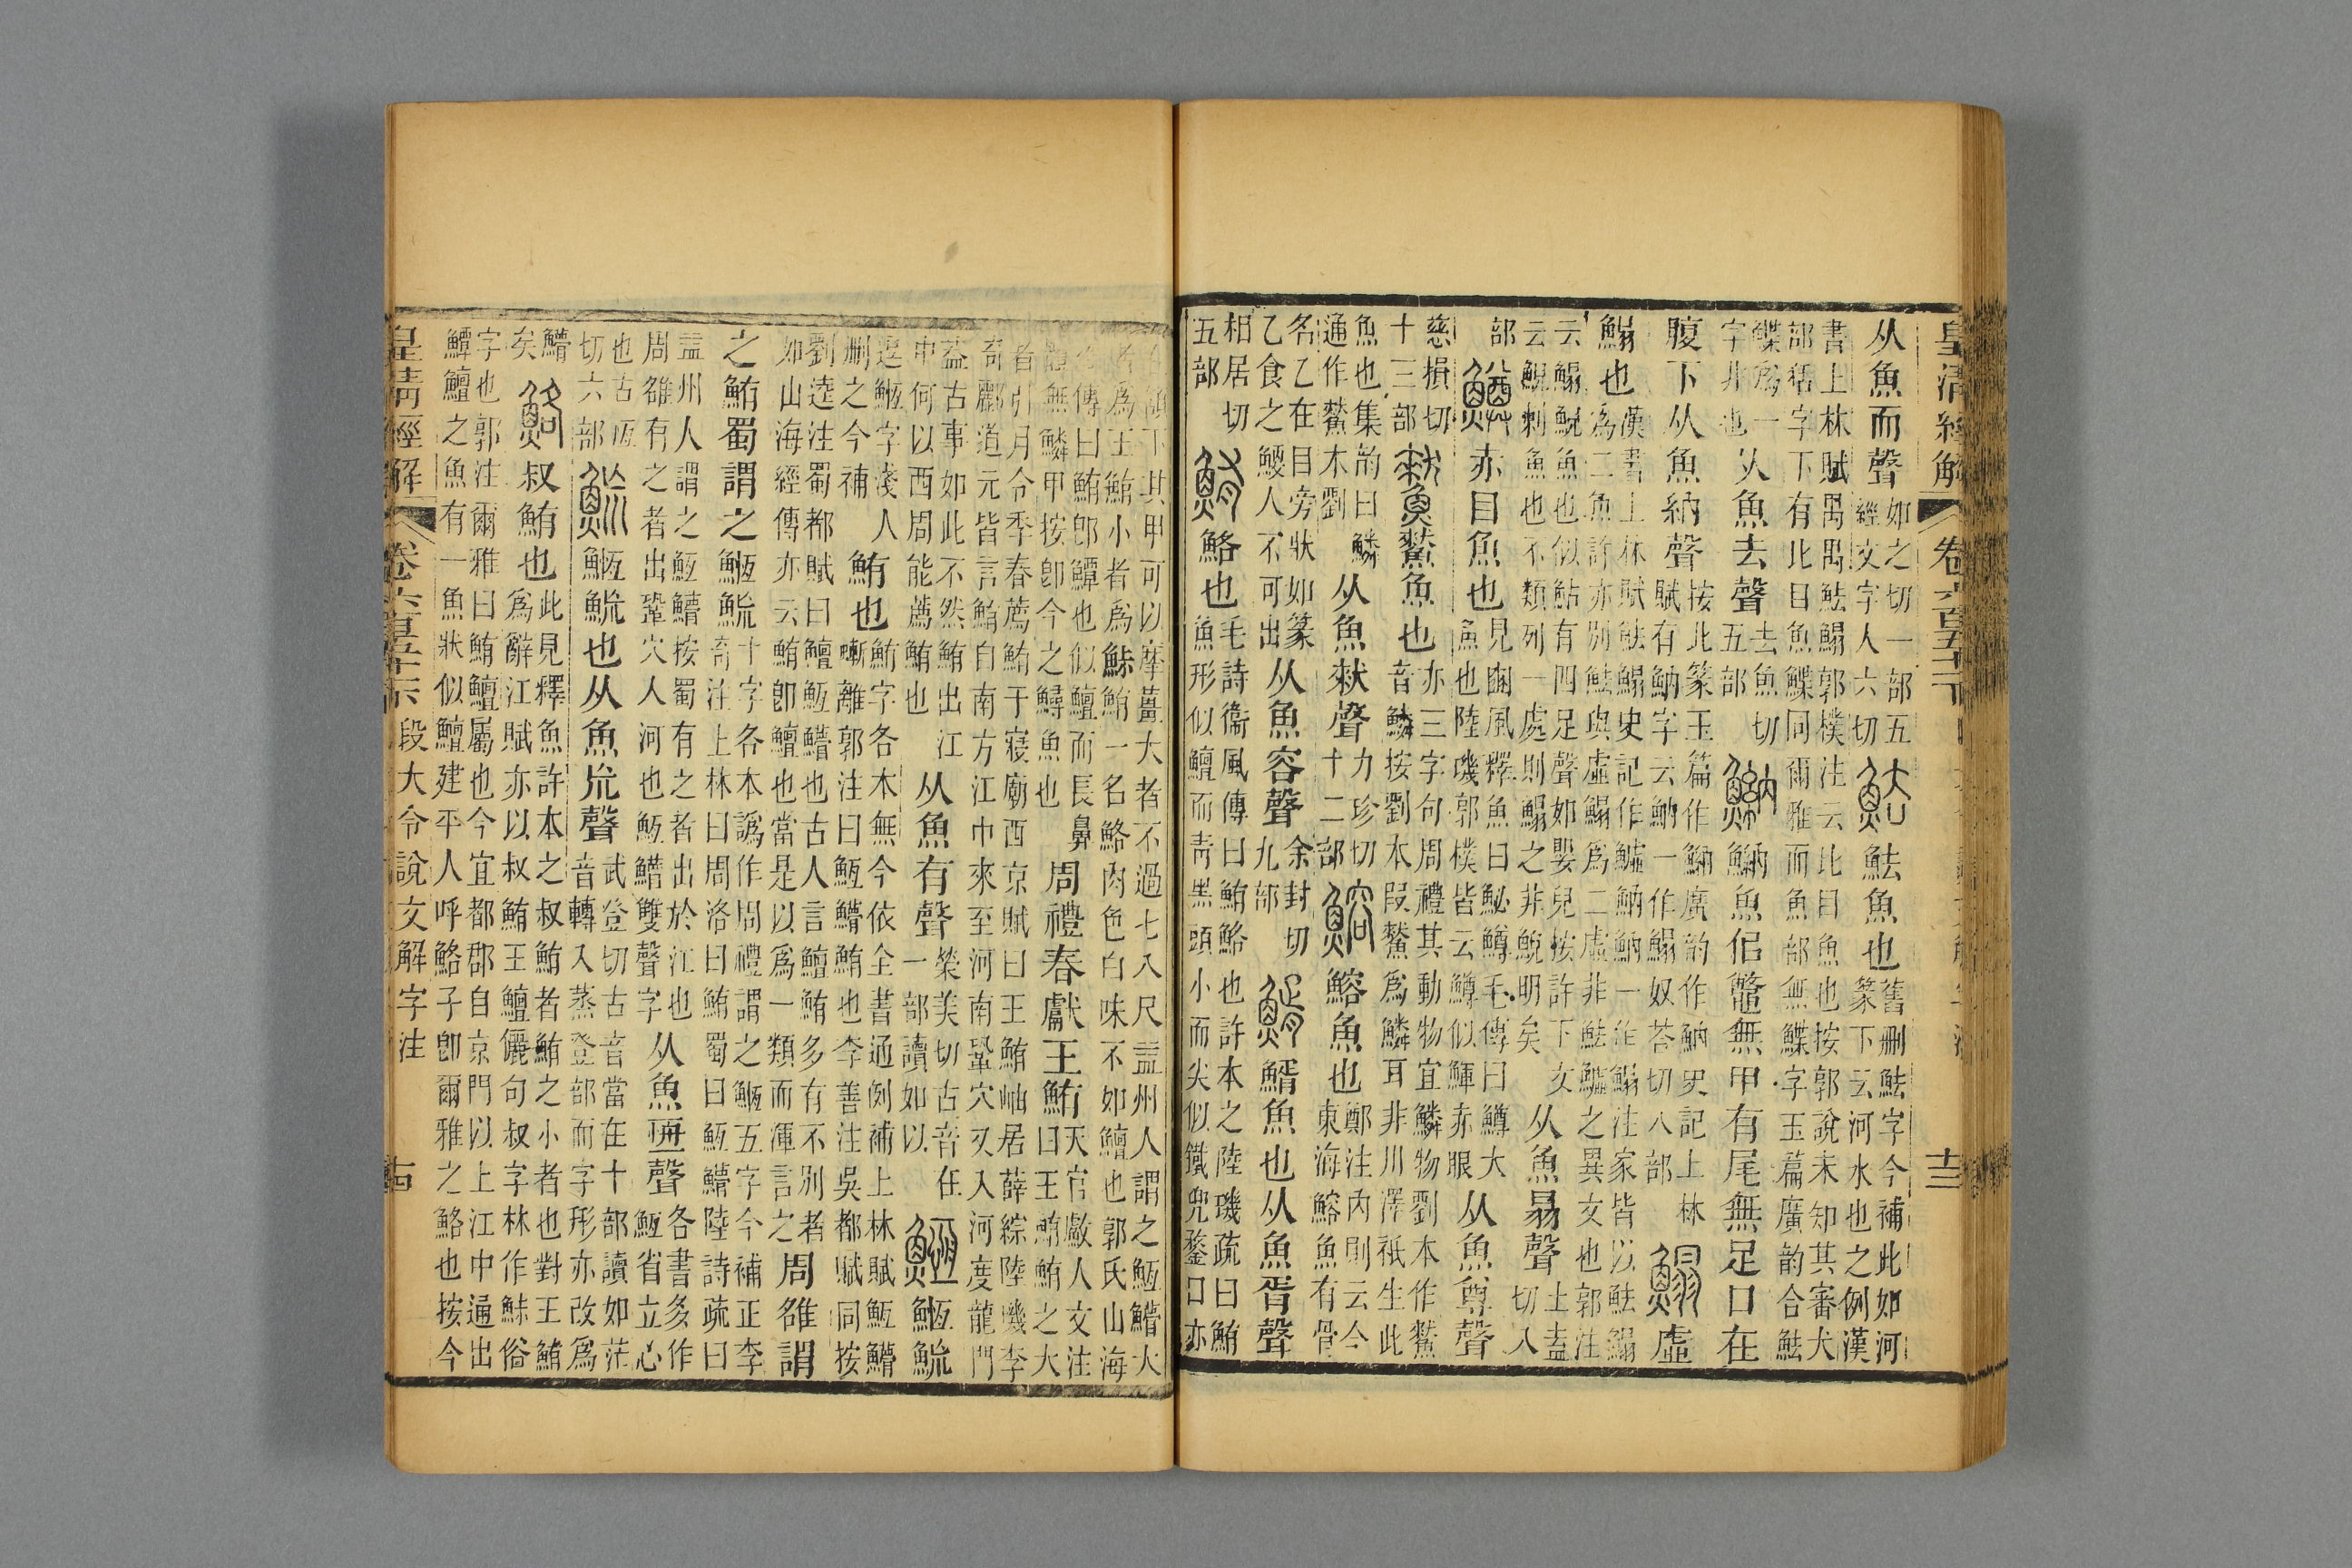 皇清經解
十三
从魚而聲
如之切一部五
經文字人六切
魼魚也
舊刪魼字今補此如河
篆下云河水也之例漢
書上林賦禺禺魼鰨郭樸注云比目魚也按郭說未知其審犬
部字下有比目魚鰈同爾雅而魚部無鰈字玉篇廣韵合魼
鰈爲一
字非也
从魚去聲
去魚切
五部
魶 魶魚佀鼈無甲有尾無足口在
腹下从魚納聲
按此篆玉篇作魶廣韵作魶史記上林
賦有魶字云魶一作鰨奴荅切八部
鰨 虛
鰨也
漢書上林賦魼鰨史記作鱋魶魶一作鰨注家皆以魼鰨
爲二魚許亦別魼與虛鰨爲二虛非魼鱋之異文也郭注
云鰨鯢魚也似鮎有四足聲如嬰兒按許下文
云鯢刺魚也不類列一處則鰨之非鯢明矣
从魚昜聲
土盍
切八
部
鱒 赤目魚也
見豳風釋魚曰鮅鱒毛傳曰鱒大
魚也陸璣郭樸皆云鱒似鯶赤眼
从魚尊聲
慈損切
十三部
魚也
亦三字句周禮其動物宜鱗物劉本作
音鱗按劉本叚爲鱗耳非川澤祇生此
魚也集韵曰鱗
通作木劉
从魚聲
力珍切
十二部
鰫 鰫魚也
鄭注內則云今
東海鰫魚有骨
名乙在目旁狀如篆
乙食之鯁人不可出
从魚容聲
余封切
九部
魚也从魚胥聲
相居切
五部
鮪 鮥也
毛詩衞風傳曰鮪鮥也許本之陸璣疏曰鮪
魚形似鱣而靑黑頭小而尖似鐵兜鍪口亦
在頷下其甲可以摩薑大者不過七八尺益州人謂之䱎䲛大
者爲王鮪小者爲鮛鮪一名鮥肉色白味不如鱣也郭氏山海
經傳曰鮪卽鱏也似鱣而長鼻
體無鱗甲按卽今之鱘魚也
周禮春獻王鮪
天官䱷人文注
曰王鮪鮪之大
者引月令季春薦鮪于寢廟西京賦曰王鮪岫居薛綜陸璣李
奇酈道元皆言鮪自南方江中來至河南鞏穴又入河度龍門
葢古事如此不然鮪出江
中何以西周能薦鮪也
从魚有聲
榮美切古音在
一部讀如以
䱎 䱎䲛
逗䱎字淺人
刪之今補
鮪也
鮪字各本無今依全書通例補上林賦䱎䲛
䗪離郭注曰䱎䲛鮪也李善注吳都賦同按
劉逵注蜀都賦曰鱣䱎䲛也古人言鱣鮪多有不別者
如山海經傳亦云鮪卽鱣也當是以爲一類而渾言之
周雒謂
之鮪蜀謂之䱎䲛
十字各本譌作周禮謂之䱎五字今補正李
奇注上林曰周洛曰鮪蜀曰䱎䲛陸詩疏曰
益州人謂之䱎䲛按蜀有之者出於江也
周雒有之者出鞏穴人河也䱎䲛雙聲字
从魚𠄨聲
各書多作
䱎省立心
也古恆
切六部
䲛 䱎䲛也从魚巟聲
武登切古音當在十部讀如茫
音轉入蒸登部而字形亦改爲
䲛
矣
叔鮪也
此見釋魚許本之叔鮪者鮪之小者也對王鮪
爲辭江賦亦以叔鮪王鱣儷句叔字林作鮛俗
字也郭注爾雅曰鮪鱣屬也今宜都郡自京門以上江中通出
鱏鱣之魚有一魚狀似鱣建平人呼鮥子卽爾雅之鮥也按今
皇清經解
卷六百五十一下 段大令說文解字注
十四